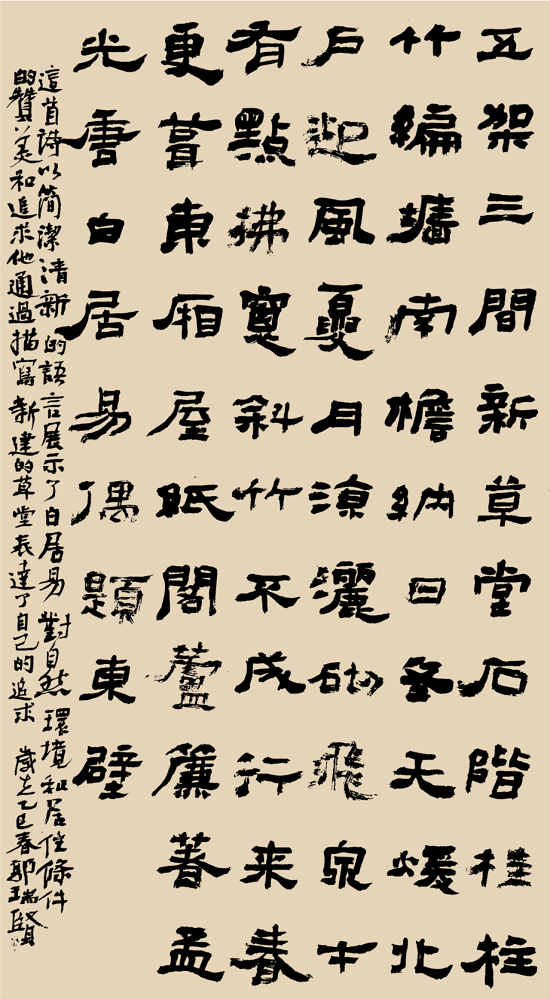 五架三間新草堂石階桂柱
竹編墻南檐納日冬天煖北
户迎風夏月凉灑砌飛泉才
有點拂窗斜竹不成行来春
更葺東廂屋紙閣蘆簾著孟
光唐白居易偶題東壁
這首詩以简潔清新的語言展示了白居易對自然環境和居住條件
的贊美和追求他通過描寫新建的草堂表達了自己的追求 歲在乙巳春郭瑞賢